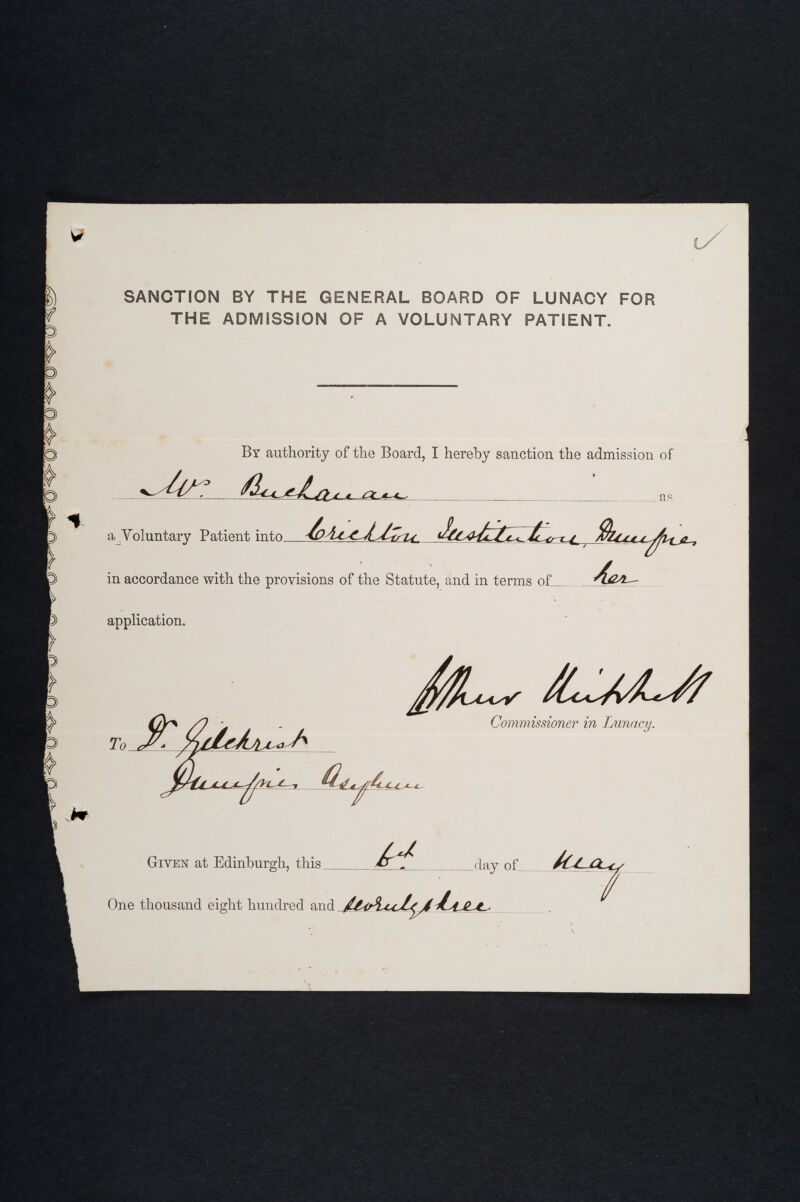 SANCTION BY THE GENERAL BOARD OF LUNACY FOR
THE ADMISSION OF A VOLUNTARY PATIENT.
By authority of the Board, I hereby sanction the admission of
Mrs. Buchanan as
a Voluntary Patient into Crichton Institution, Dumfries
in accordance with the provisions of the Statute, and in terms of her
application.
Arthur Mitchell
Commissioner in Lunacy.
To Dr. Gilchrist
Dumfries Asylum
Given at Edinburgh, this 6th day of May
One thousand eight hundred and seventy three